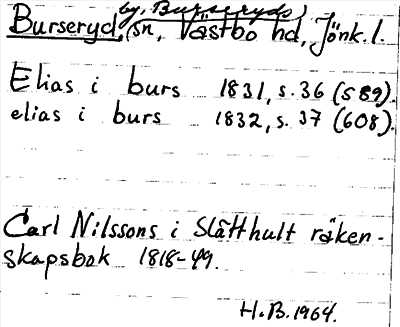 by, Burseryds)
Burseryd, sn, Västbo hd, Jönk. l.
Elias i burs 1831, s. 36 (589).
elias i burs 1832, s. 37 (608).
Carl Nilssons i Slätthult räken-
skapsbok 1818-49.
H.B. 1964.